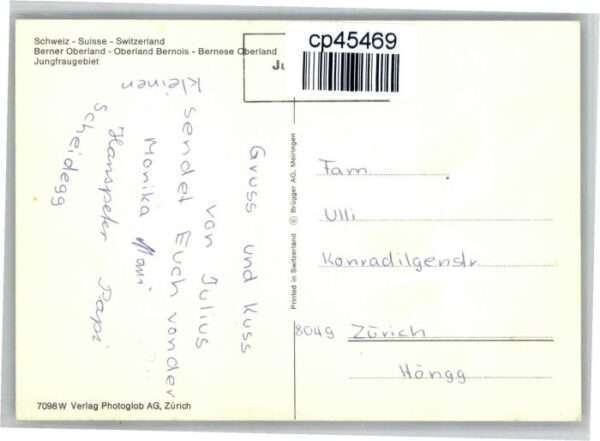 Schweiz - Suisse - Switzerland
Berner Oberland - Oberland Bernois - Bernese Oberland
Jungfraugebiet
cp45469
Ju
Gruss und Kuss
von Julius
sendet Euch von der
kleinen
Scheidegg
Monika Mami
Hanspeter Papi
Printed in Switzerland © Brügger AG, Meiringen
Fam
Ulli
Konradilgenstr
8049 Zürich
Höngg
7098W Verlag Photoglob AG, Zürich